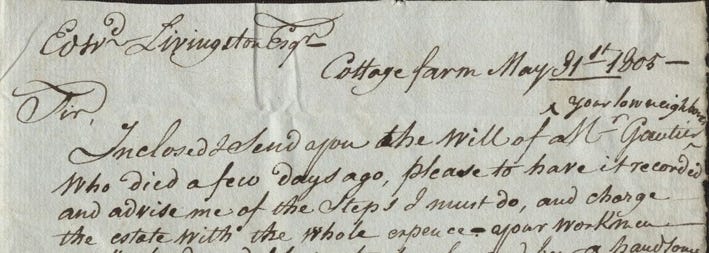 Edwd Livingston Esqr
Cottage farm May 31st 1805
Sir,
your low neighbour
Inclosed I send you the Will of a Mr Gautier
who died a few days ago, please to have it recorded
and advise me of the Steps I must do, and charge
the estate with the whole expence - your workmen
a handsome